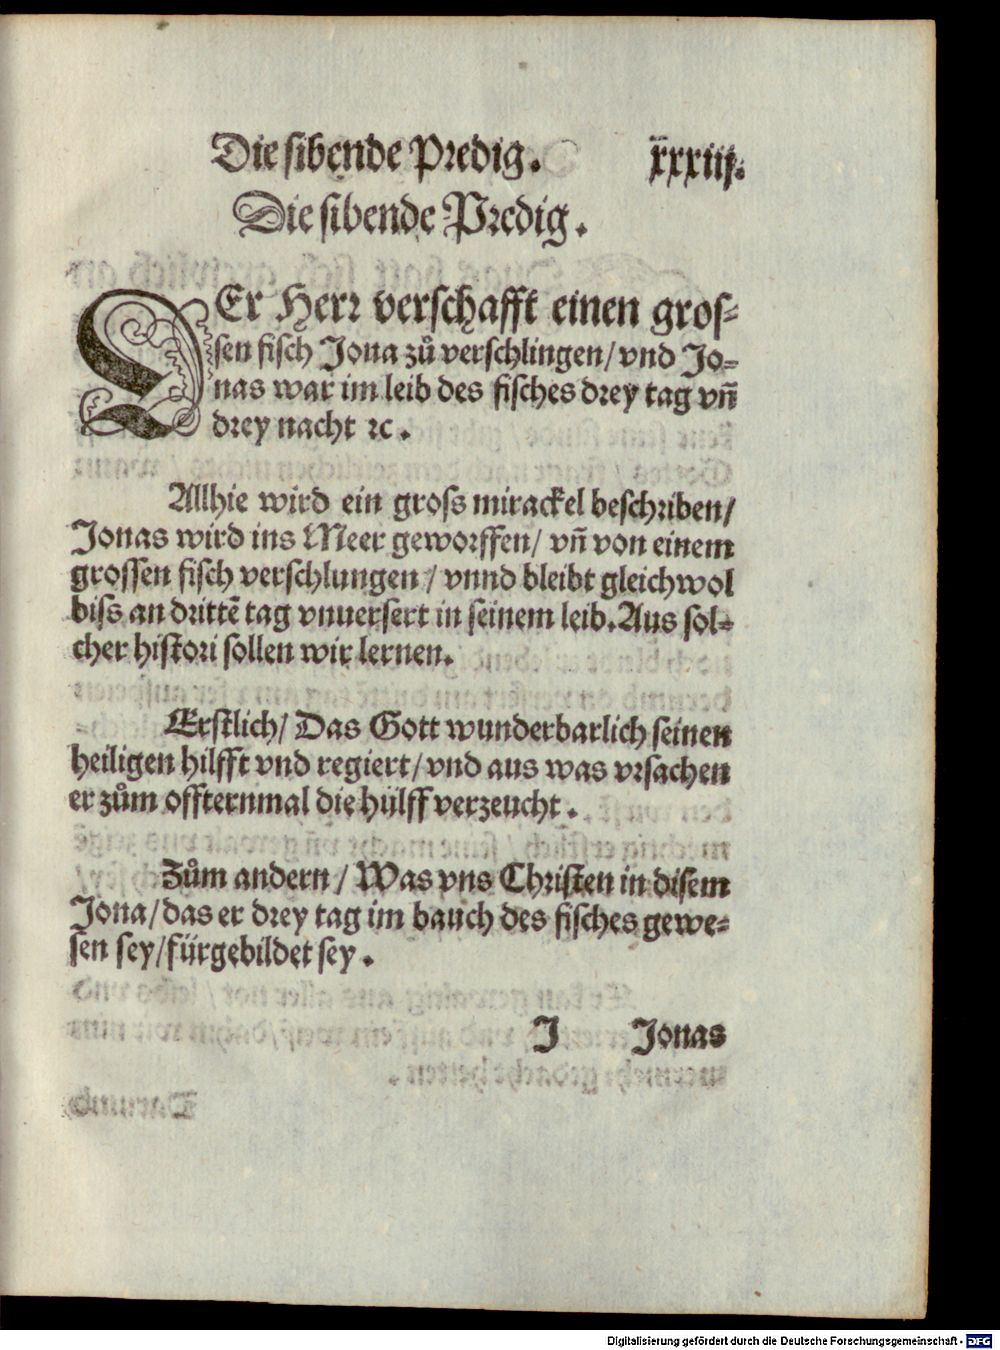 Die sibende Predig. xxxiij.
Die sibende Predig.
DEr Herr verschafft einen gros⸗
sen fisch Jona zů verschlingen/ vnd Jo⸗
nas war im leib des fisches drey tag vñ
drey nacht ꝛc.
Allhie wird ein gross mirackel beschriben/
Jonas wird ins Meer geworffen/ vñ von einem
grossen fisch verschlungen/ vnnd bleibt gleichwol
biss an drittẽ tag vnuersert in seinem leib. Aus sol⸗
cher histori sollen wir lernen.
Erstlich/ Das Gott wunderbarlich seinen
heiligen hilfft vnd regiert/ vnd aus was vrsachen
er zům offternmal die hülff verzeucht.
Zům andern/ Was vns Christen in disem
Jona/ das er drey tag im bauch des fisches gewe⸗
sen sey/ fürgebildet sey.
J Jonas
Digitalisierung gefördert durch die Deutsche Forschungsgemeinschaft - DFG